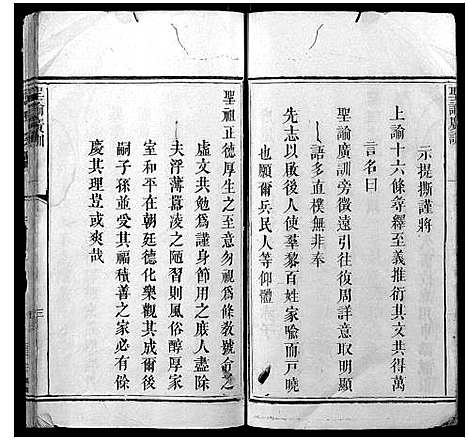 聖諭廣訓
示提撕謹將
上諭十六條尋釋至義推衍其文共得萬
言名曰
聖諭廣訓旁徵遠引往復周詳意取明顯
語多直樸無非奉
先志以啟後人使羣黎百姓家喻而戶曉
也願爾兵民人等仰體
聖祖正德厚生之至意勿視為條教號令之
虛文共勉為謹身節用之庶人盡除
夫浮薄囂凌之陋習則風俗醇厚家
室和平在朝廷德化樂觀其成爾後
嗣子孫並受其福積善之家必有餘
慶其理豈或爽哉
聖諭廣訓
三